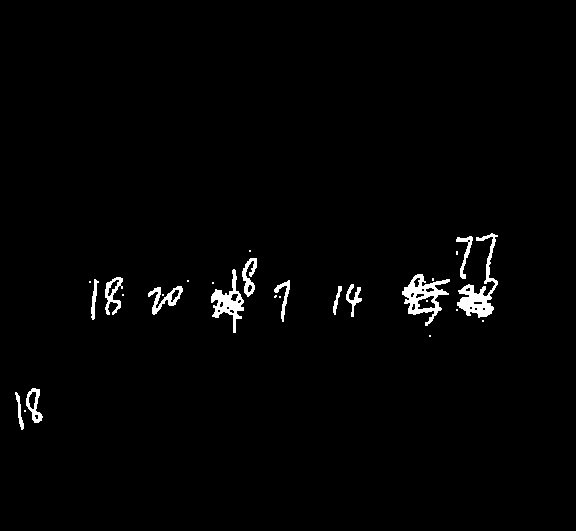 18 20 18 7 14 77
18